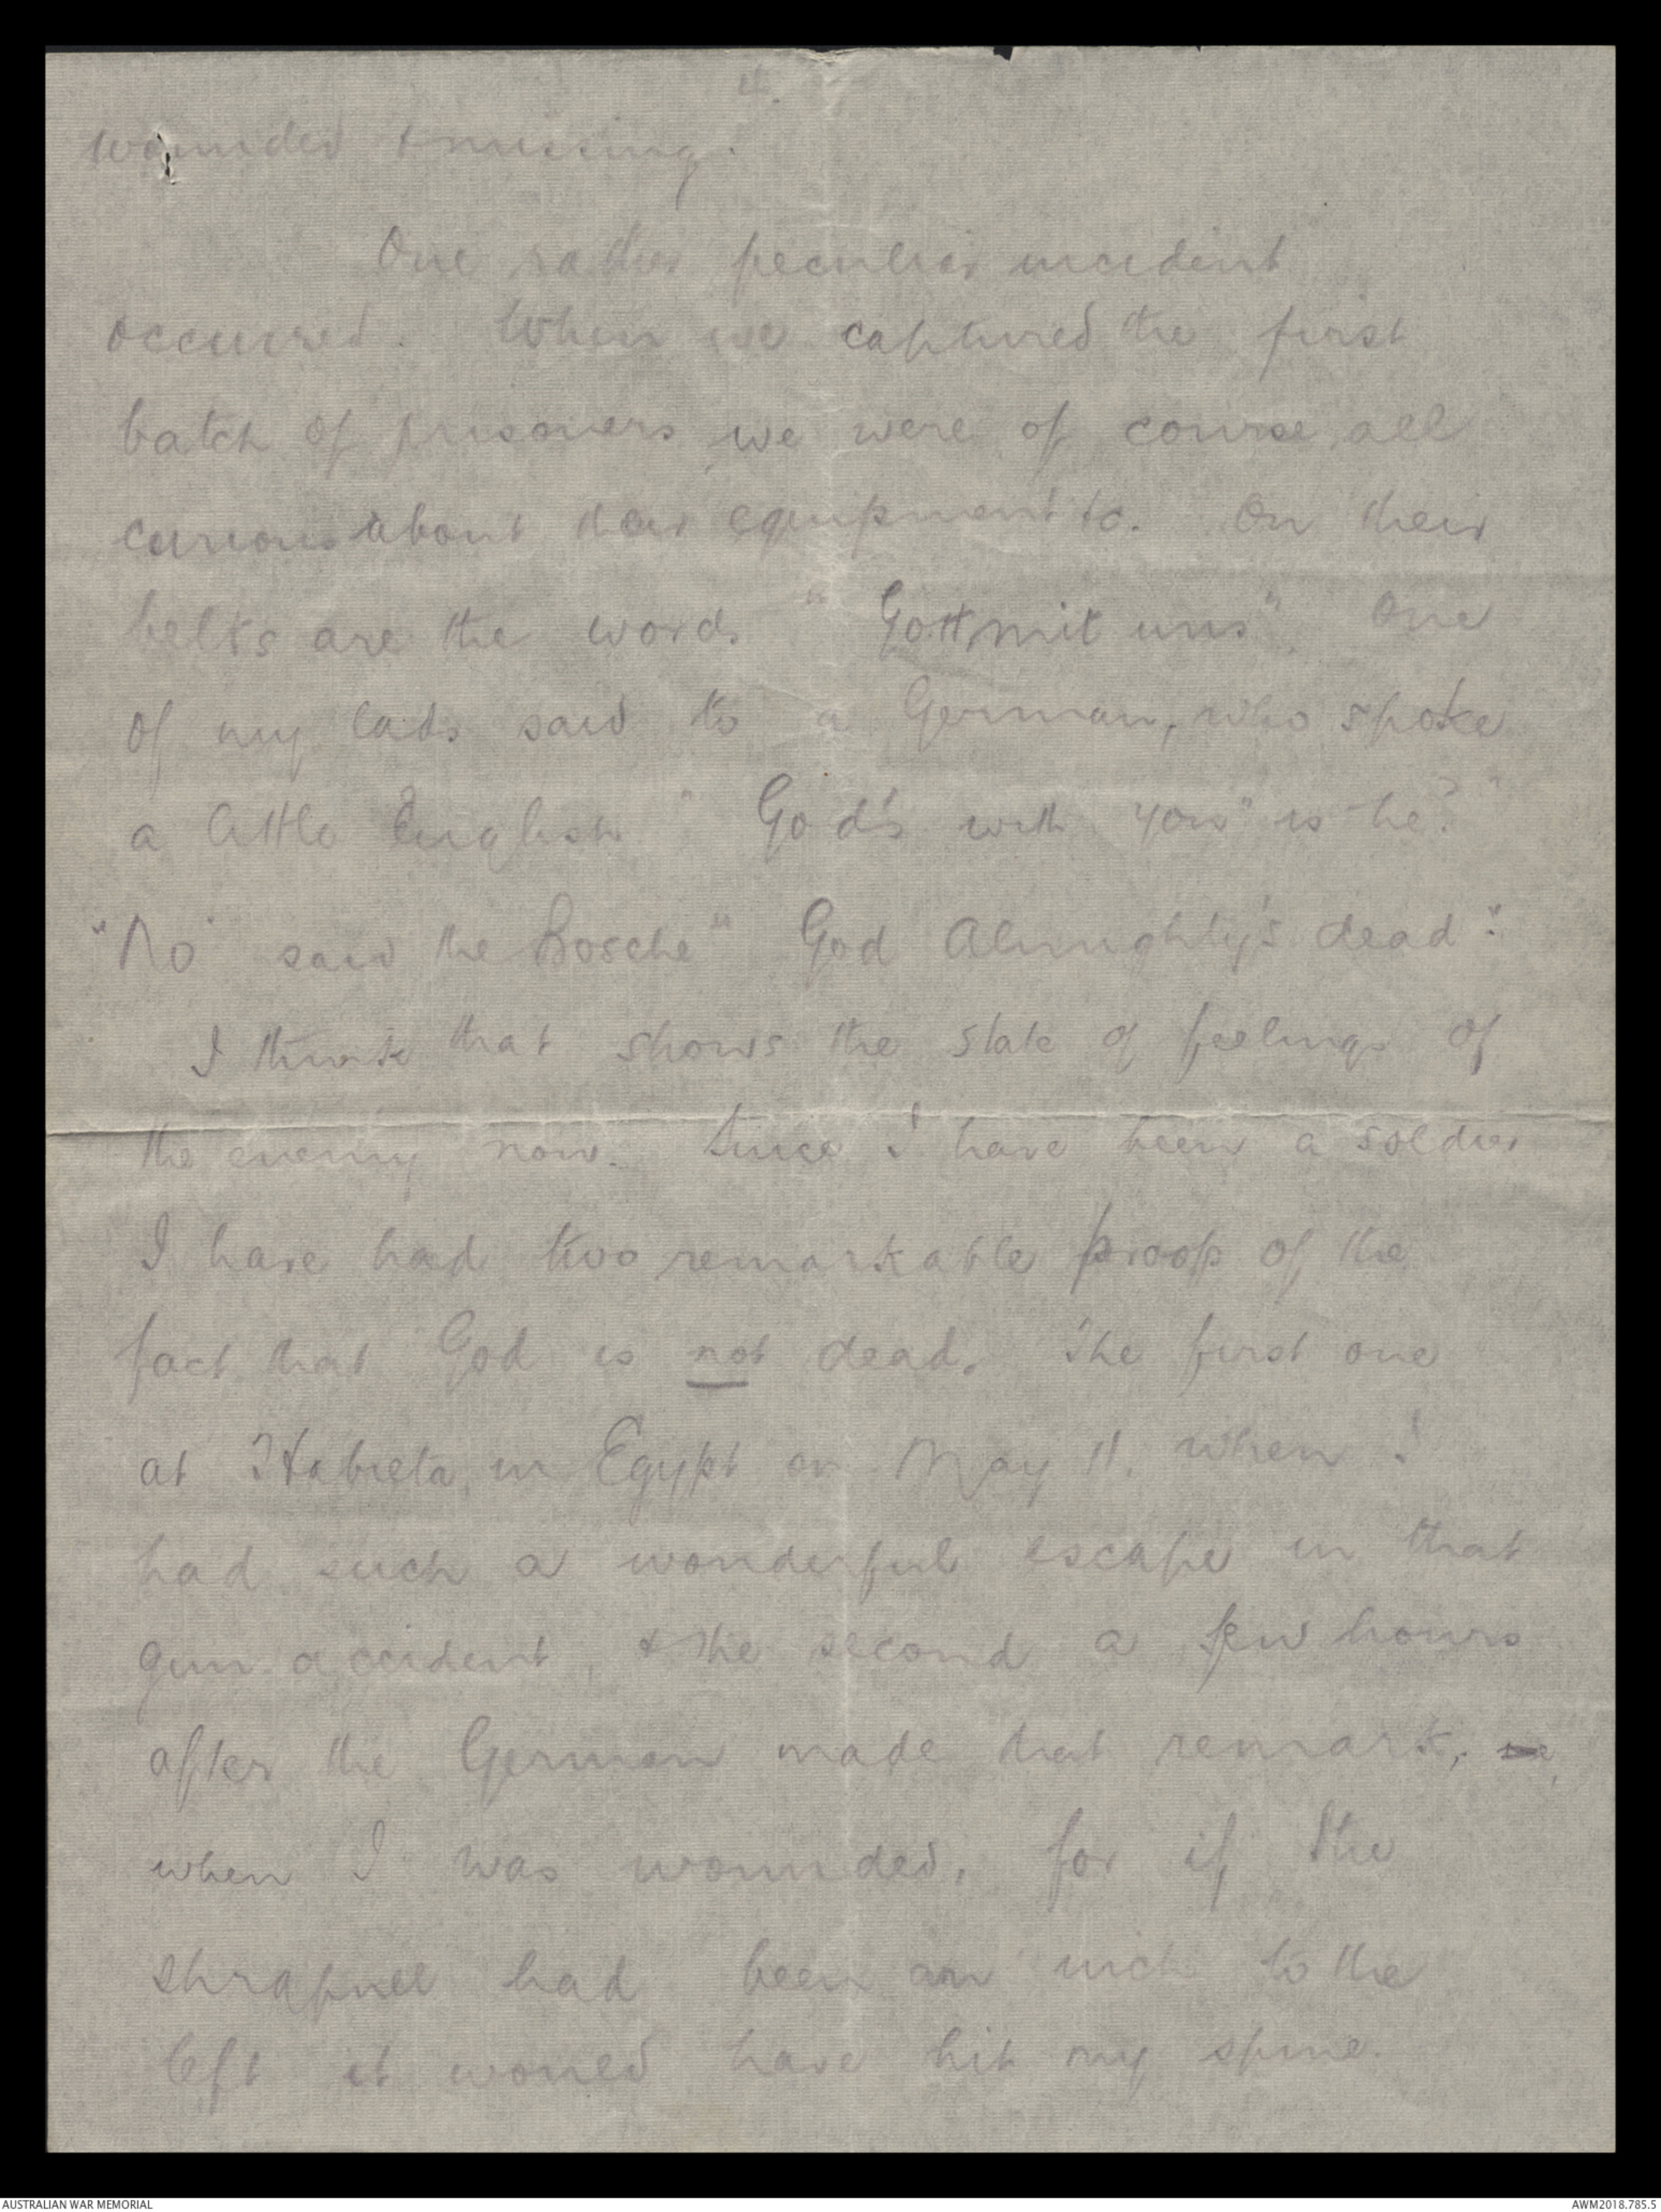 4.
wounded & missing.
One rather peculiar incident
occurred. When we captured the first
batch of prisoners we were of course all
curious about their equipment &c. On their
belts are the words "Gott mit uns". One
of my lads said to a German, who spoke
a little English "God's with you" is he?"
"No" said the Bosche "God Almighty's dead".
I think that shows the state of feelings of
the enemy now. Since I have been a soldier
I have had two remarkable proofs of the
fact that God is not dead. The first one
at Habieta, in Egypt on May 11. when I
had such a wonderful escape in that
gun accident, & the second a few hours
after the German made that remark,
when I was wounded, for if the
shrapnel had been an inch to the
left it would have hit my spine.
AUSTRALIAN WAR MEMORIAL
AWM2018.785.5